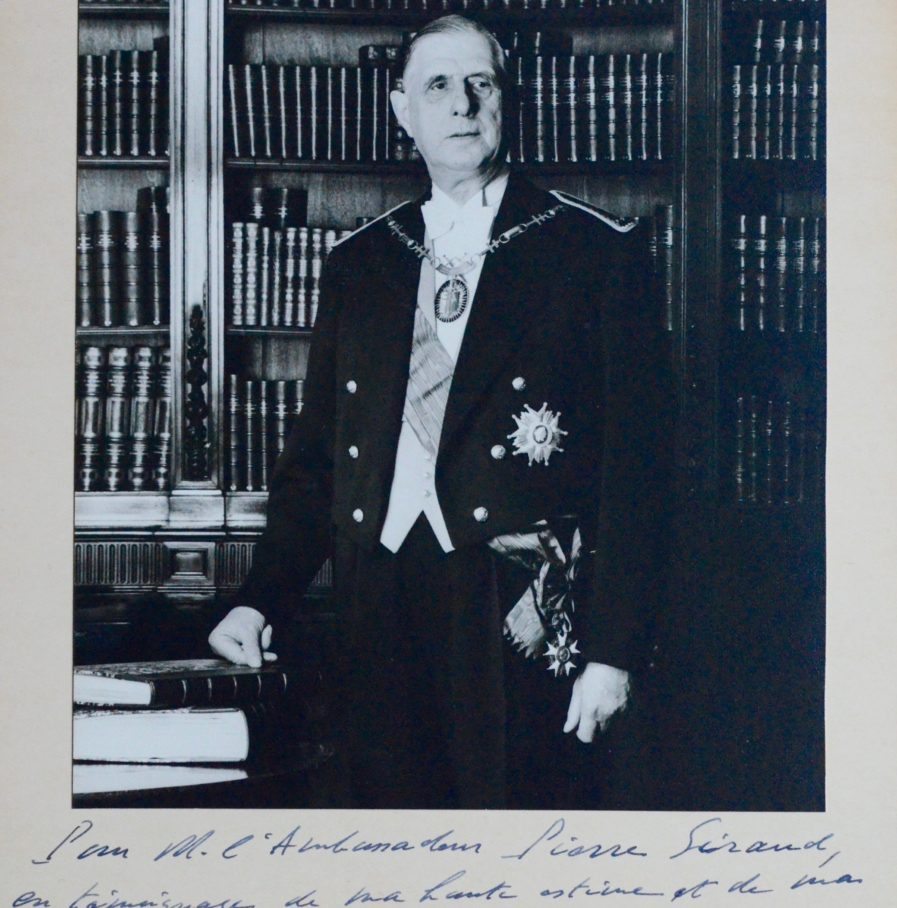 Pour M. l'Ambassadeur Pierre Siraud,
en témoignage de ma haute estime et de mes